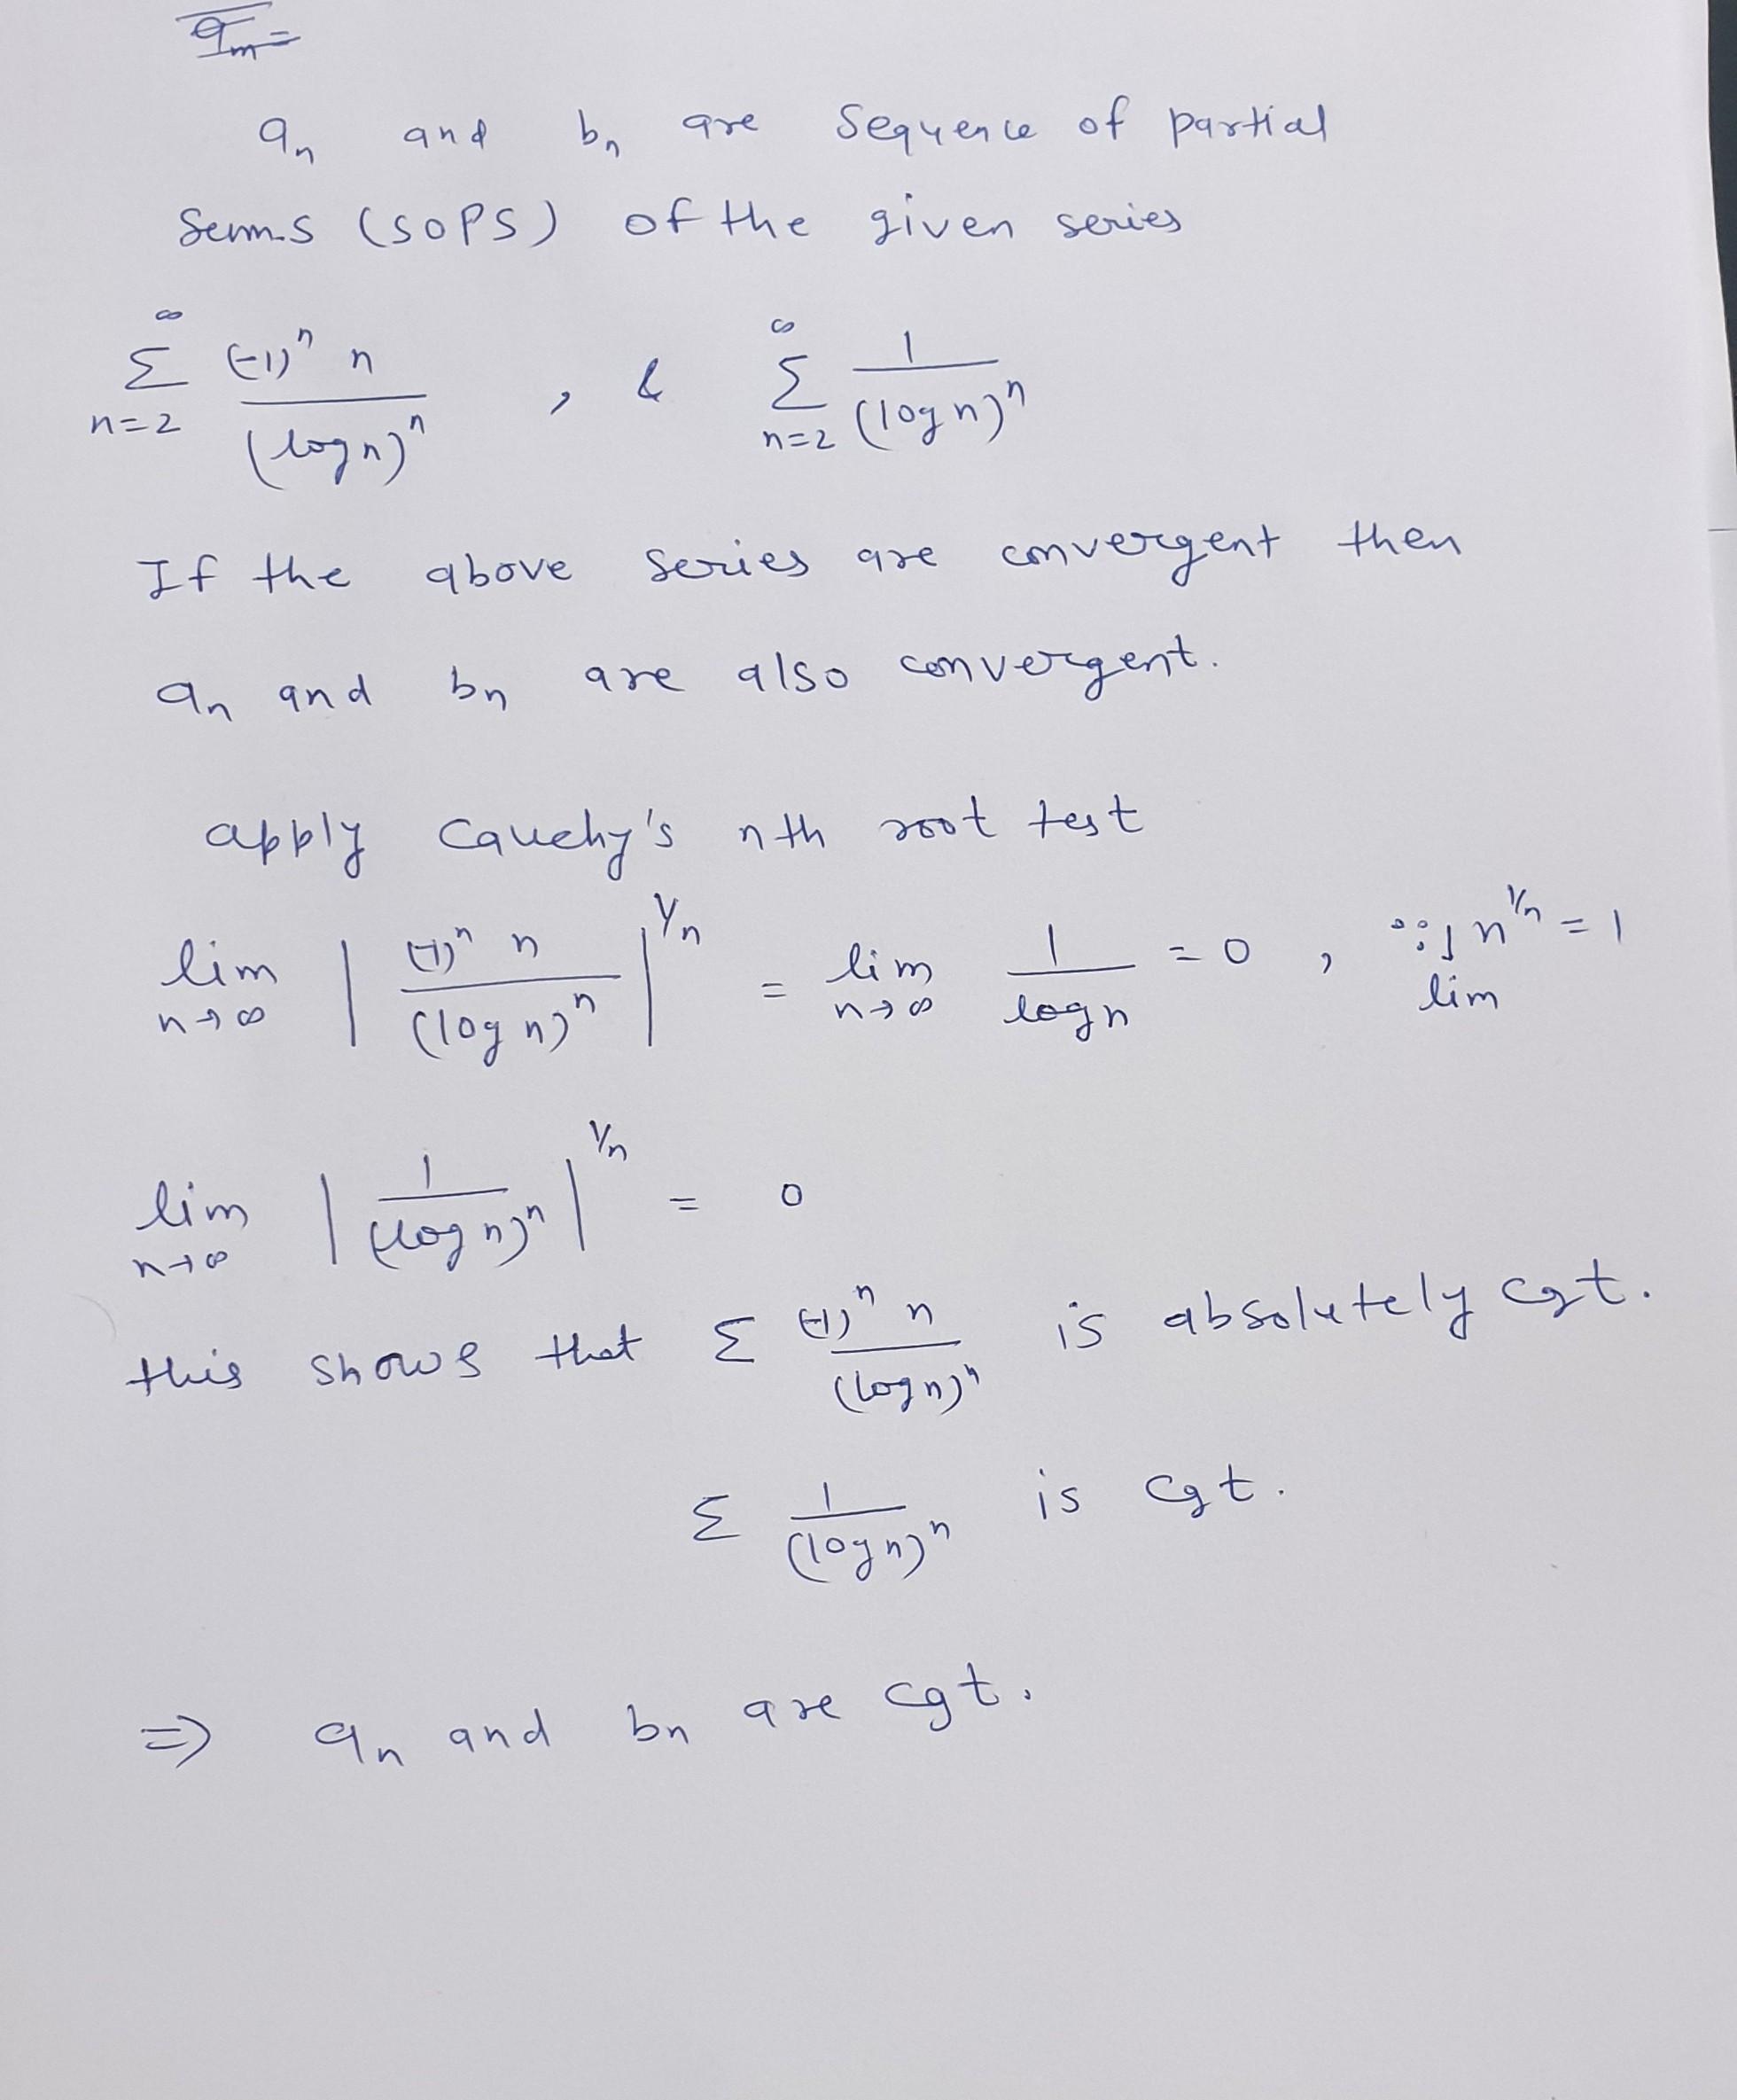 a_n and b_n are Sequence of partial
Sums (SOPS) of the given series
∞ Σ n=2 (-1)^n n / (log n)^n , & ∞ Σ n=2 1 / (log n)^n
If the above series are convergent then
a_n and b_n are also convergent.
apply Cauchy's nth root test
lim n→∞ | (-1)^n n / (log n)^n |^1/n = lim n→∞ 1 / log n = 0 , ∵ lim n^1/n = 1
lim n→∞ | 1 / (log n)^n |^1/n = 0
this shows that Σ (-1)^n n / (log n)^n is absolutely cgt.
Σ 1 / (log n)^n is cgt.
⇒ a_n and b_n are cgt.